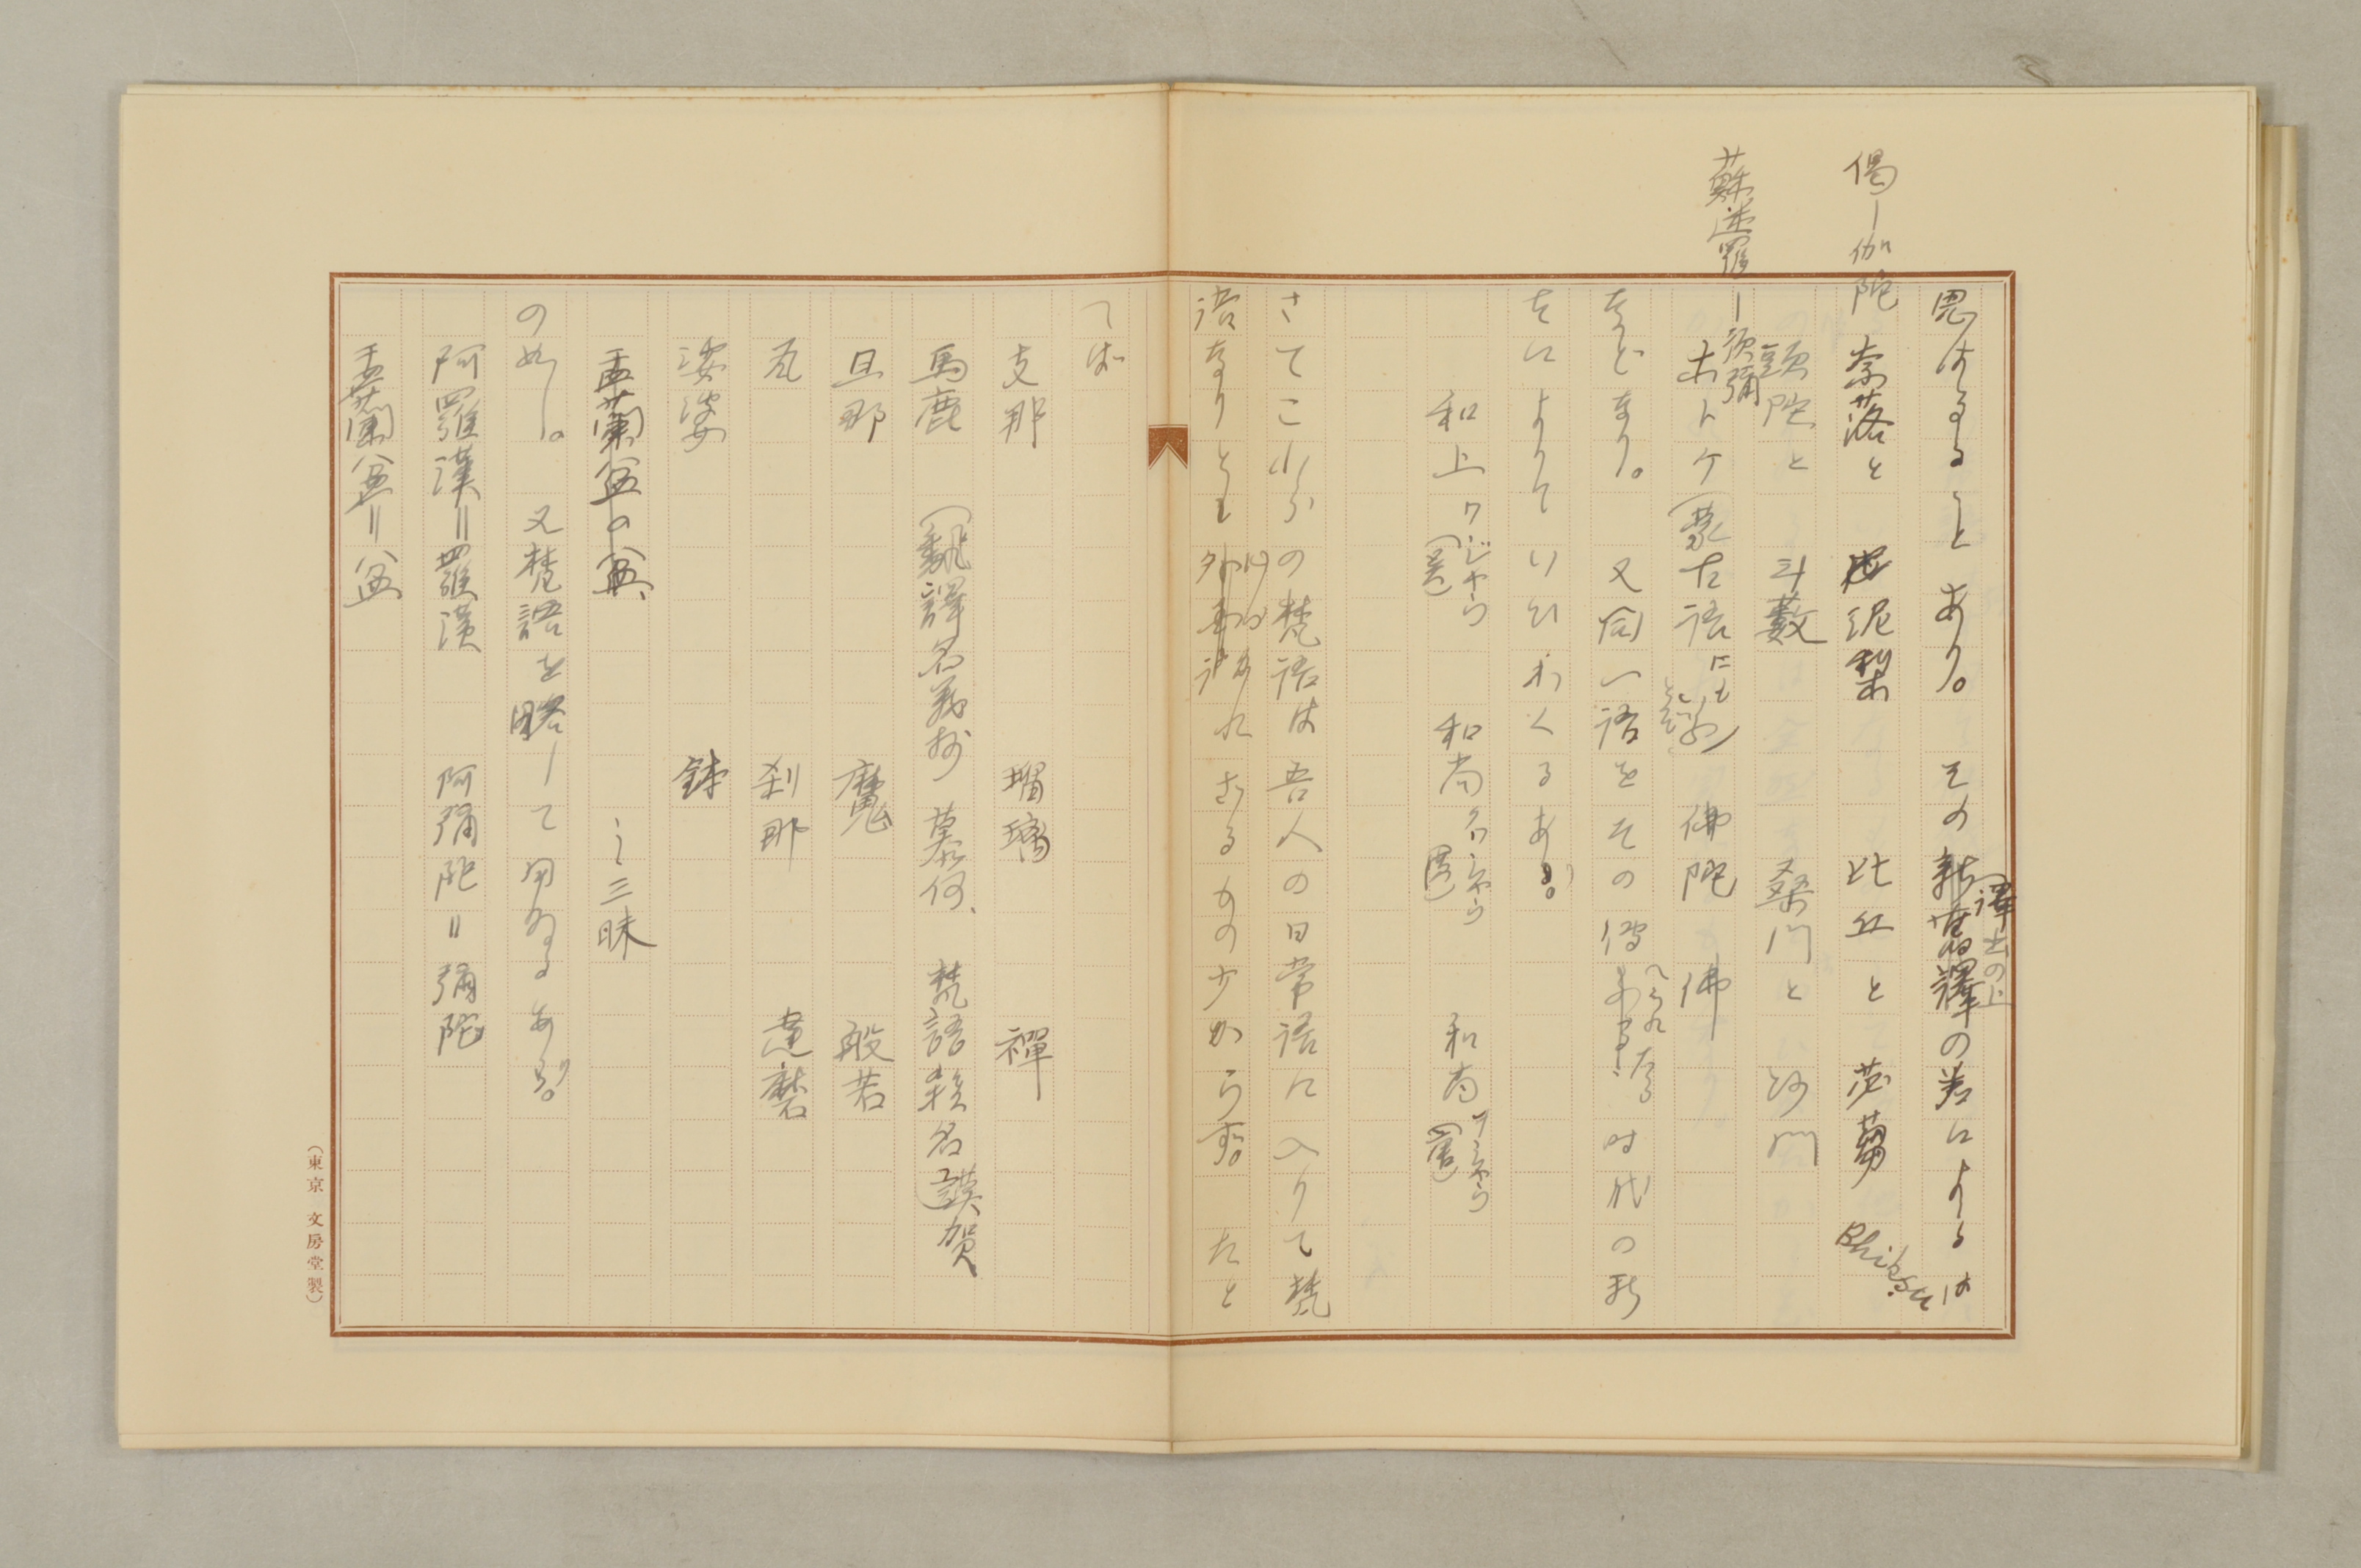 偈―伽陀
蘇迷羅―須彌
思はるることあり。その新舊譯の差によるは
譯出の上
奈落と 泥梨 比丘と 苾蒭 Bhiksu
頭陀と 斗藪 桑門と 沙門
ホトケ(蒙古語にもいふ) 佛陀 佛
などあり。 又同一語をその傳へられたる時代の新
古によりていひわくるあり。
和上ワジヤウ(呉) 和尚クワシヤウ(漢) 和尚ヲシヤウ(唐)
さてこれらの梵語は吾人の日常語に入りて梵
語なりとも心づかれざるもの少からず。たと
へば
支那 瑠璃 禪
馬鹿 (飜譯名義抄 慕何、梵語賴名謨賀)
旦那 魔 般若
瓦 刹那 達磨
婆婆 鉢
盂蘭盆の盆、 ―三昧
の如し。 又梵語を略して用ゐるあり。
阿羅漢=羅漢 阿彌陀=彌陀
盂蘭盆=盆
(東京 文房堂製)